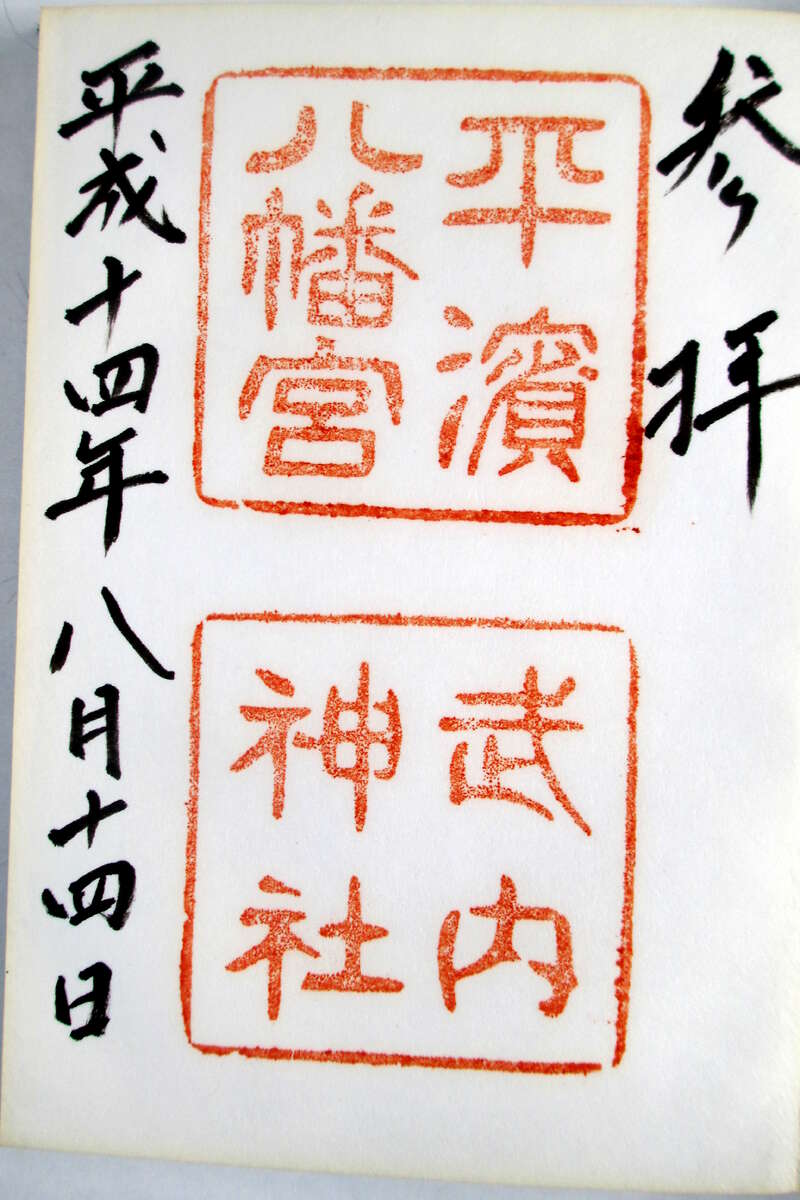 参拝
平濱
八幡宮
武内
神社
平成十四年八月十四日